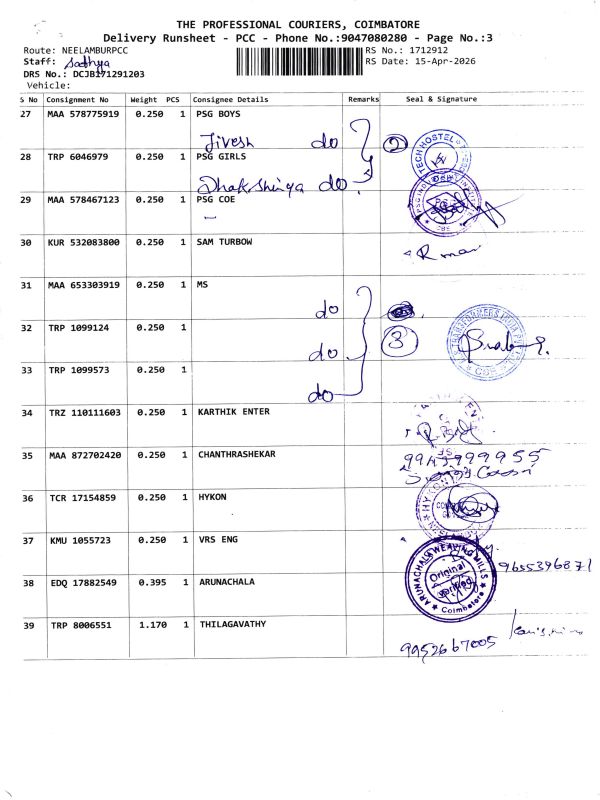 THE PROFESSIONAL COURIERS, COIMBATORE
Delivery Runsheet - PCC - Phone No.:9047080280 - Page No.:3
Route: NEELAMBURPCC RS No.: 1712912
Staff: Sathya RS Date: 15-Apr-2026
DRS No.: DCJB171291203
Vehicle:
S No Consignment No Weight PCS Consignee Details Remarks Seal & Signature
27 MAA 578775919 0.250 1 PSG BOYS
Jivesh do 2
28 TRP 6046979 0.250 1 PSG GIRLS
TECH HOSTEL
Dhakshinya do
29 MAA 578467123 0.250 1 PSG COE
CBE
30 KUR 532083800 0.250 1 SAM TURBOW
31 MAA 653303919 0.250 1 MS
do
32 TRP 1099124 0.250 1
3
do
CBE
33 TRP 1099573 0.250 1
do
34 TRZ 110111603 0.250 1 KARTHIK ENTER
35 MAA 872702420 0.250 1 CHANTHRASHEKAR
36 TCR 17154859 0.250 1 HYKON
HYKON
37 KMU 1055723 0.250 1 VRS ENG
ARUNACHALA WEAVING MILLS
Original
Verified
Coimbatore
9655396871
38 EDQ 17882549 0.395 1 ARUNACHALA
39 TRP 8006551 1.170 1 THILAGAVATHY
9952667005